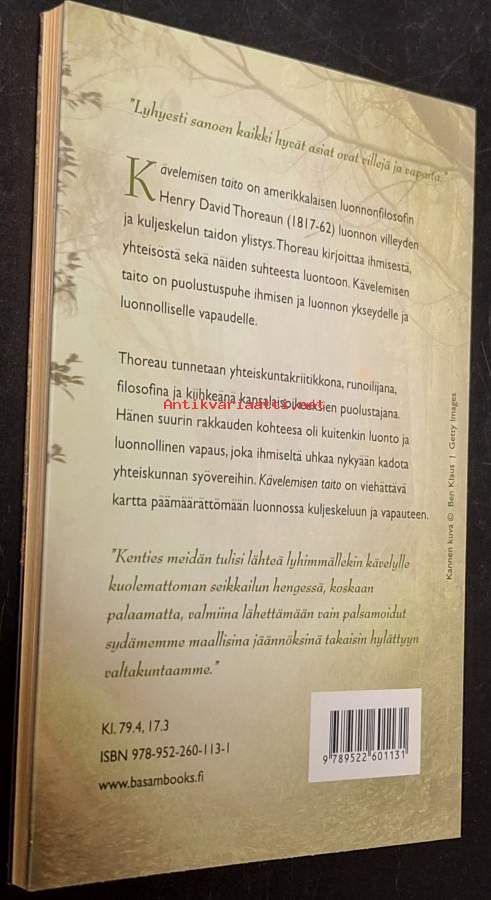 "Lyhyesti sanoen kaikki hyvät asiat ovat villejä ja vapaita."
Kävelemisen taito on amerikkalaisen luonnonfilosofin
Henry David Thoreaun (1817-62) luonnon villeyden
ja kuljeskelun taidon ylistys. Thoreau kirjoittaa ihmisestä,
yhteisöstä sekä näiden suhteesta luontoon. Kävelemisen
taito on puolustuspuhe ihmisen ja luonnon ykseydelle ja
luonnolliselle vapaudelle.
Thoreau tunnetaan yhteiskuntakriitikkona, runoilijana,
filosofina ja kiihkeänä kansalaisoikeuksien puolustajana.
Hänen suurin rakkauden kohteesa oli kuitenkin luonto ja
luonnollinen vapaus, joka ihmiseltä uhkaa nykyään kadota
yhteiskunnan syövereihin. Kävelemisen taito on viehättävä
kartta päämäärättömään luonnossa kuljeskeluun ja vapauteen.
"Kenties meidän tulisi lähteä lyhimmällekin kävelylle
kuolemattoman seikkailun hengessä, koskaan
palaamatta, valmiina lähettämään vain palsamoidut
sydämemme maallisina jäännöksinä takaisin hylättyyn
valtakuntaamme."
Kl. 79.4, 17.3
ISBN 978-952-260-113-1
www.basambooks.fi
9 789522 601131
Kannen kuva © Ben Klaus | Getty Images